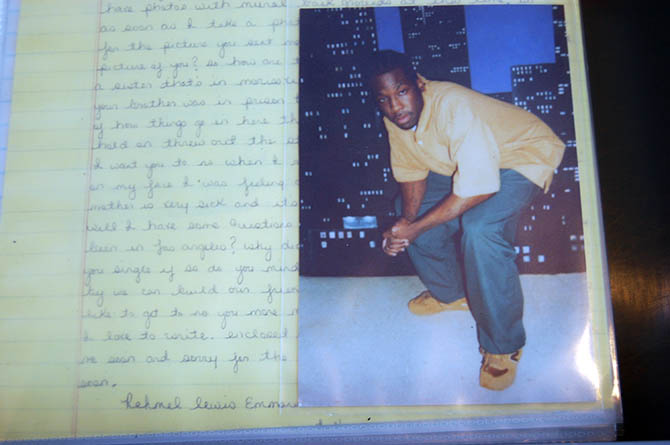 have photos with mural back grounds at this time. 
as soon as I take a phot
for the picture you sent me
picture of you? so how are t
a sister that's in
your brother was in prison t
of how things go in here th
hold on threw out the se
I want you to no when I s
on my face I was feeling
mother is very sick and its
will I have some questions
been in Los angeles? why di
you single if so do you mind
by we can build our frien
like to get to no you more
I love to write. enclosed
me soon and sorry for the
soon.
Rahmel Lewis